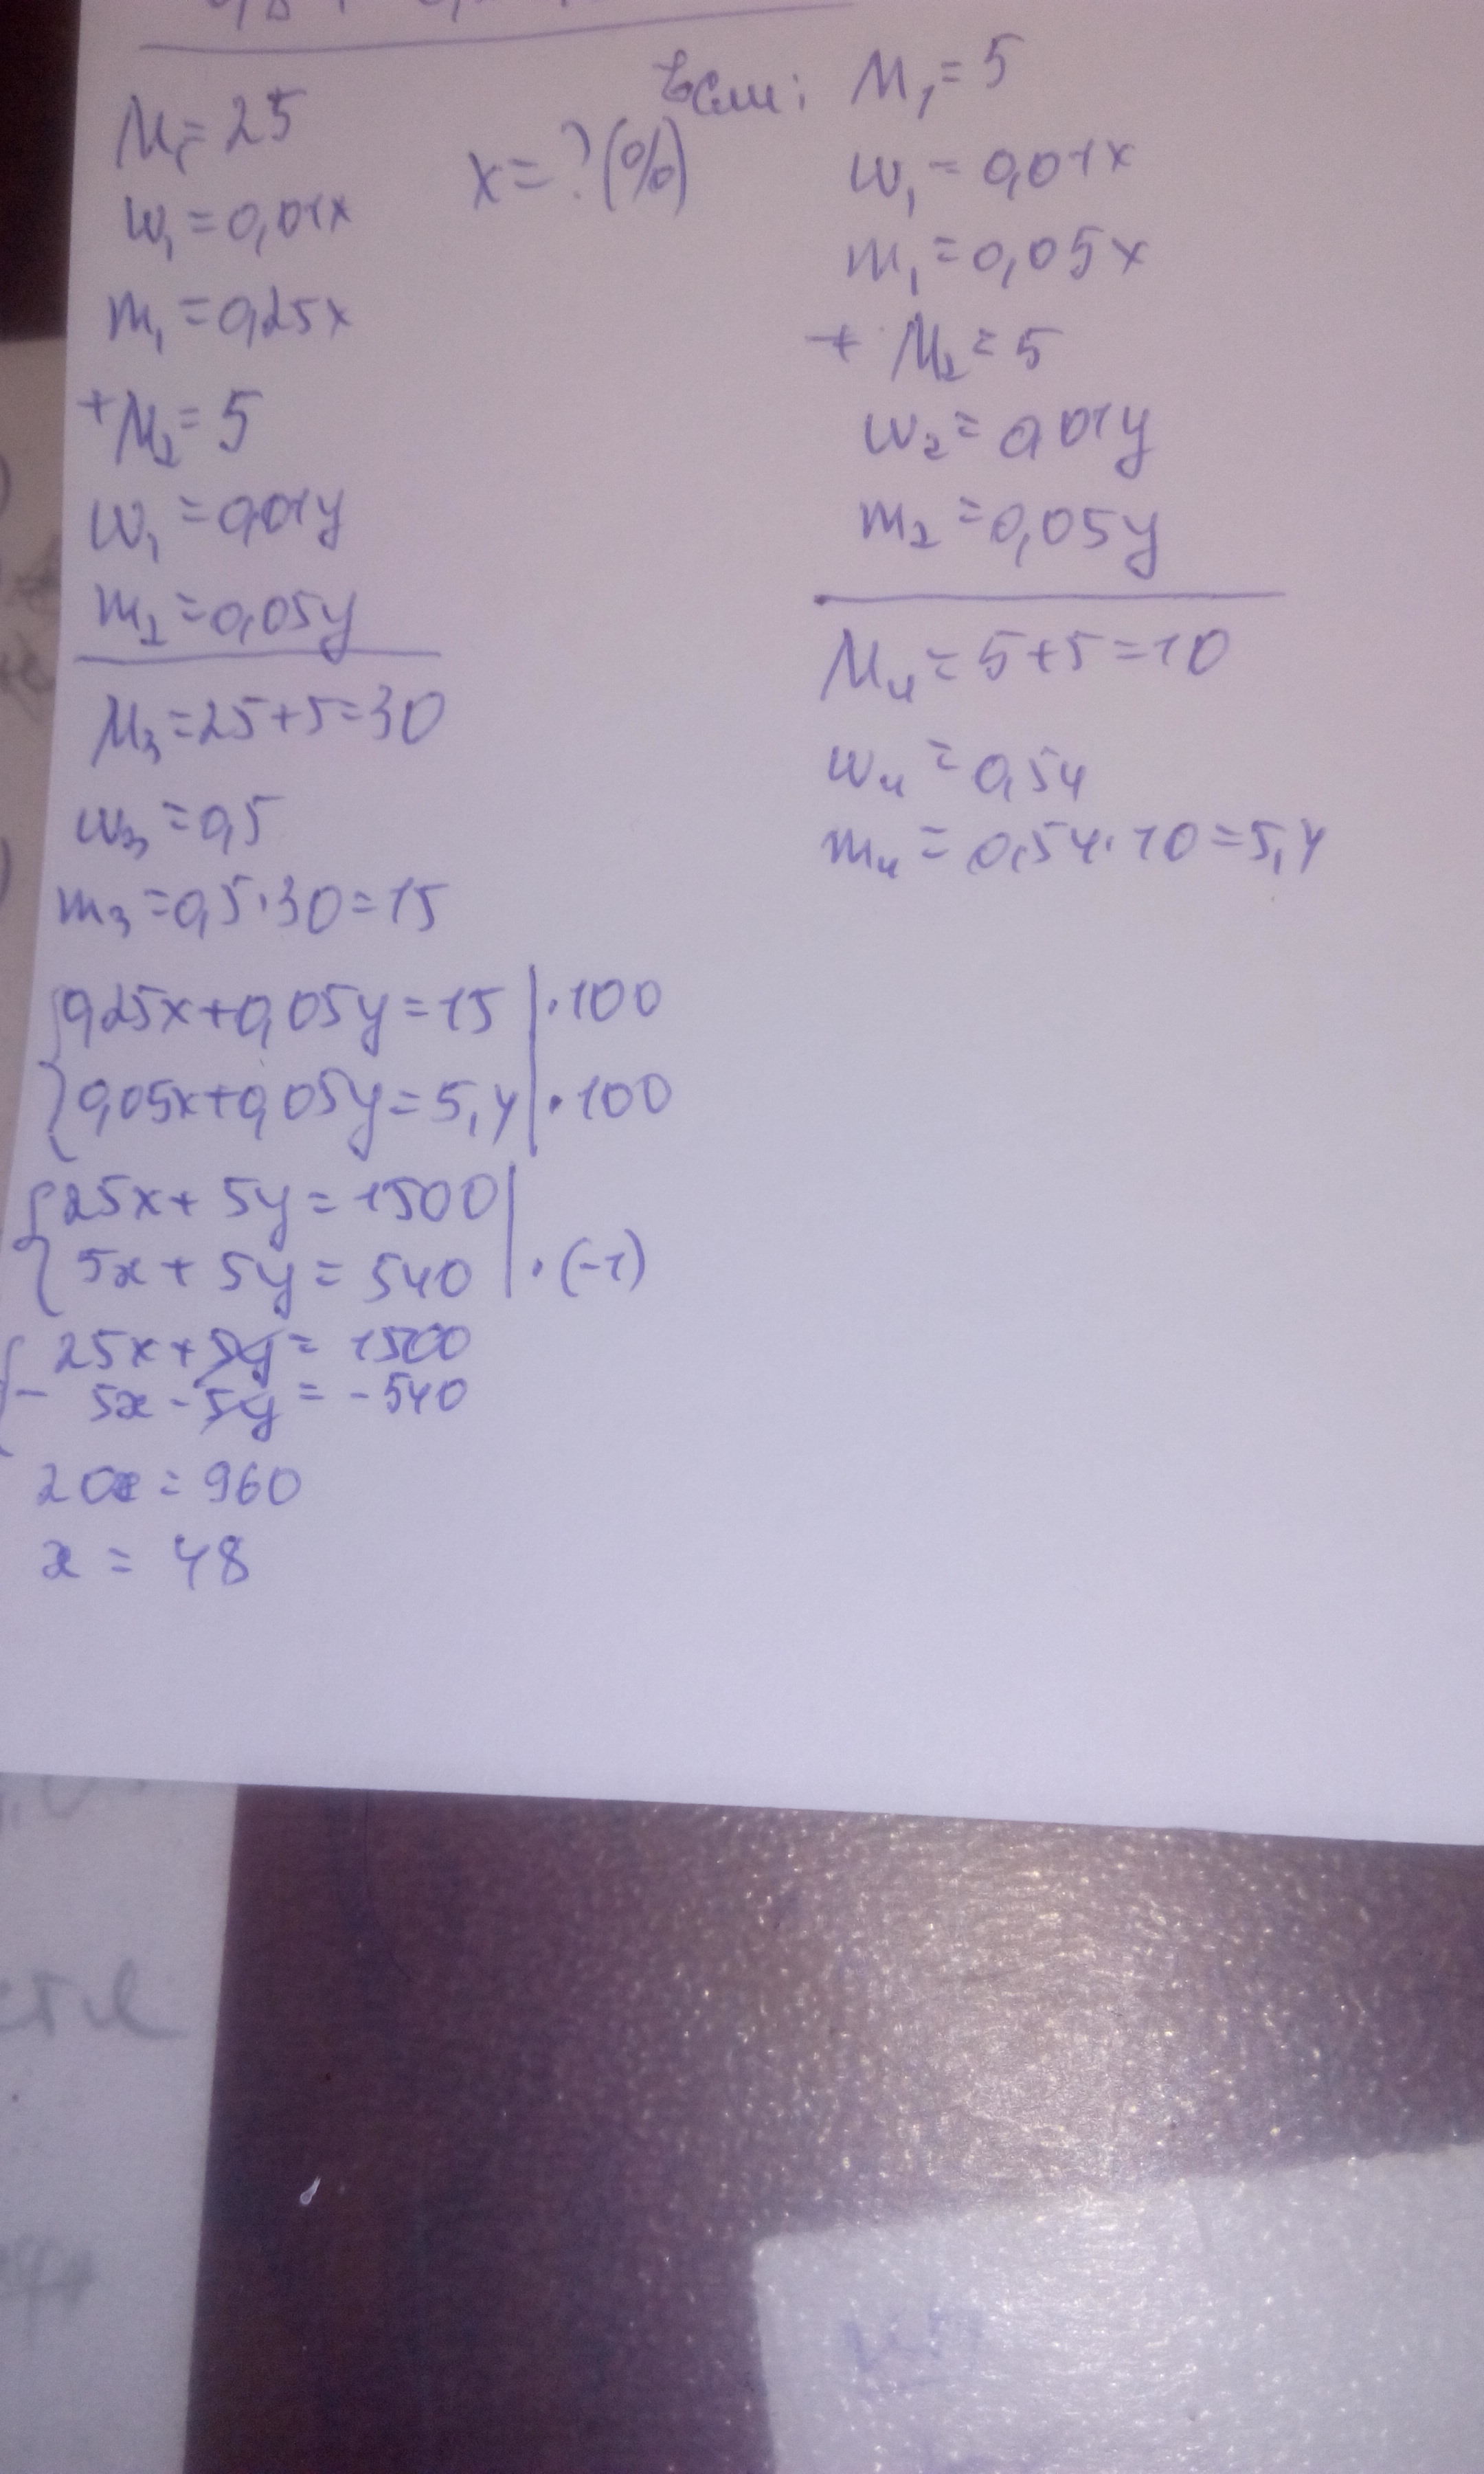 M₁ = 25
w₁ = 0,01x
m₁ = 0,25x
+ M₂ = 5
w₁ = 0,01y
m₂ = 0,05y
M₃ = 25+5=30
w₃ = 0,5
m₃ = 0,5·30=15
x = ? (%)
Если: M₁ = 5
w₁ = 0,01x
m₁ = 0,05x
+ M₂ = 5
w₂ = 0,01y
m₂ = 0,05y
M₄ = 5+5=10
w₄ = 0,54
m₄ = 0,54·10=5,4
{0,25x+0,05y=15 |·100
{0,05x+0,05y=5,4 |·100
{25x+5y=1500 |
{5x+5y=540 |·(-1)
{25x+5y=1500
{-5x-5y=-540
20x=960
x = 48